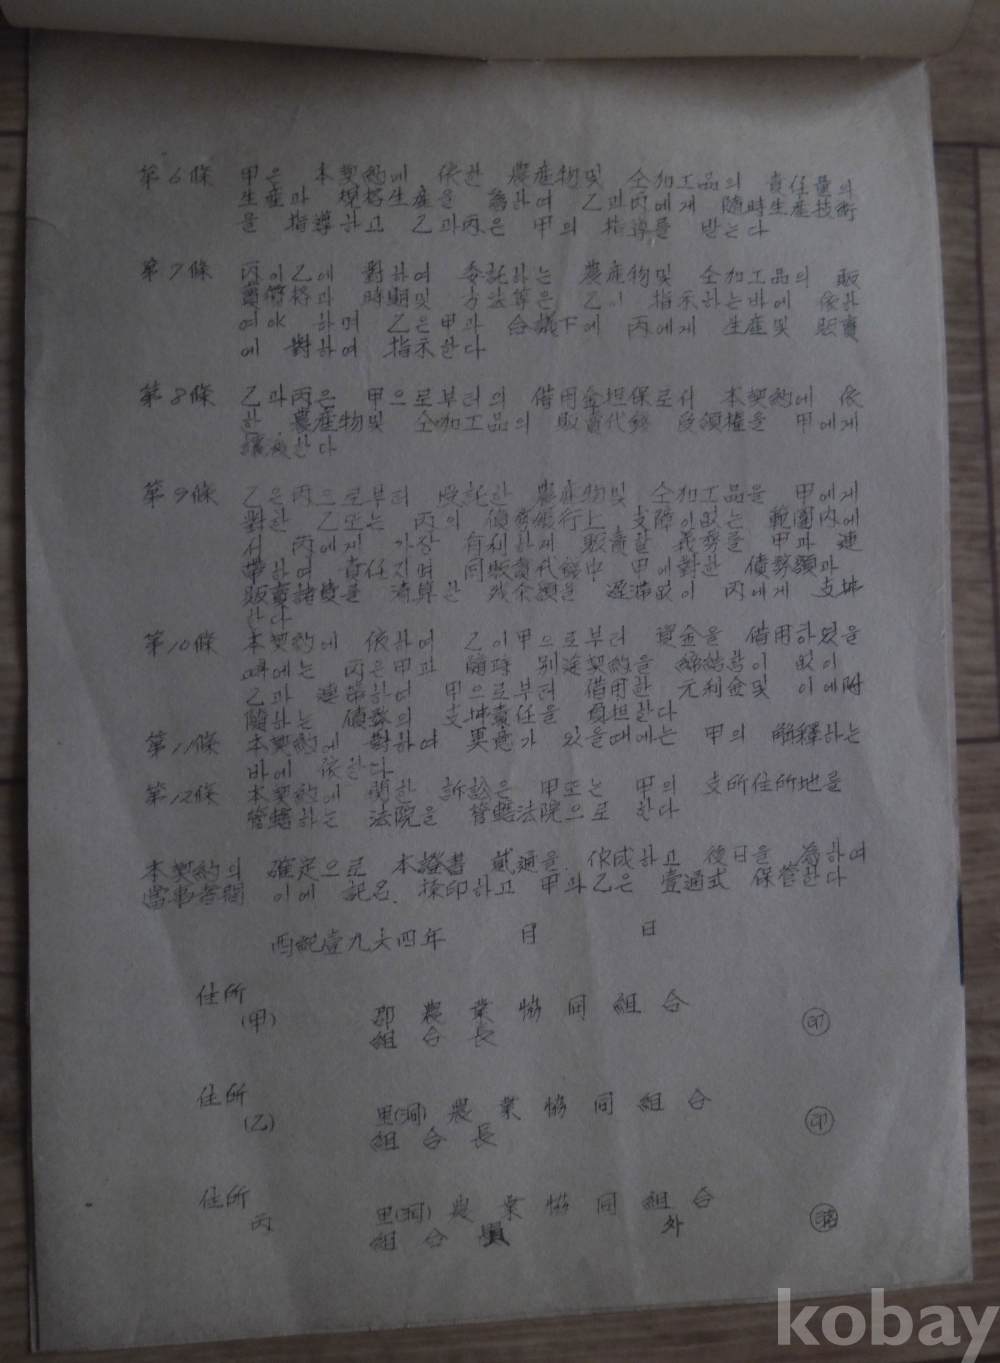 第6條 甲은 本契約에 依한 農産物및 仝加工品의 責任量의
生産과 規格生産을 爲하여 乙과丙에게 隨時生産技術
을 指導하고 乙과丙은 甲의 指導를 받는다
第7條 丙이乙에 對하여 委託하는 農産物및 仝加工品의 販
賣價格과 時期및 方法等은 乙이 指示하는바에 依하
여야 하며 乙은甲과 合議下에 丙에게 生産및 販賣
에 對하여 指示한다
第8條 乙과丙은 甲으로부터의 借用金担保로서 本契約에 依
한 農産物및 仝加工品의 販賣代錢 受領權을 甲에게
한다
第9條 乙은丙으로부터 受託한 農産物및 仝加工品을 甲에게
對한 乙또는 丙의 債務履行上 支障이없는 範圍內에
서 丙에게 가장 有利하게 販賣할 義務를 甲과 連
帶하여 責任지며 同販賣代錢中 甲에對한 債務額과
販賣諸費를 淸算한 残余額을 遅滞없이 丙에게 支拂
한다
第10條 本契約에 依하여 乙이甲으로부터 資金을 借用하였을
때에는 丙은甲과 隨時 別途契約을 締結함이 없이
乙과 連帶하여 甲으로부터 借用한 元利金및 이에附
隨하는 債務의 支拂責任을 負担한다
第11條 本契約에 對하여 異意가 있을때에는 甲의 解釋하는
바에 依한다
第12條 本契約에 関한 訴訟은 甲또는 甲의 支所住所地를
管轄하는 法院을 管轄法院으로 한다
本契約의 確定으로 本證書 貳通을 作成하고 後日을 為하여
當事者間 이에 記名 捺印하고 甲과乙은 壹通式 保管한다
西紀壹九六四年 月 日
住所
(甲) 郡農業協同組合
組合長 ㊞
住所
(乙) 里(洞)農業協同組合
組合長 ㊞
住所
丙 里(洞)農業協同組合
組合員 外
kobay